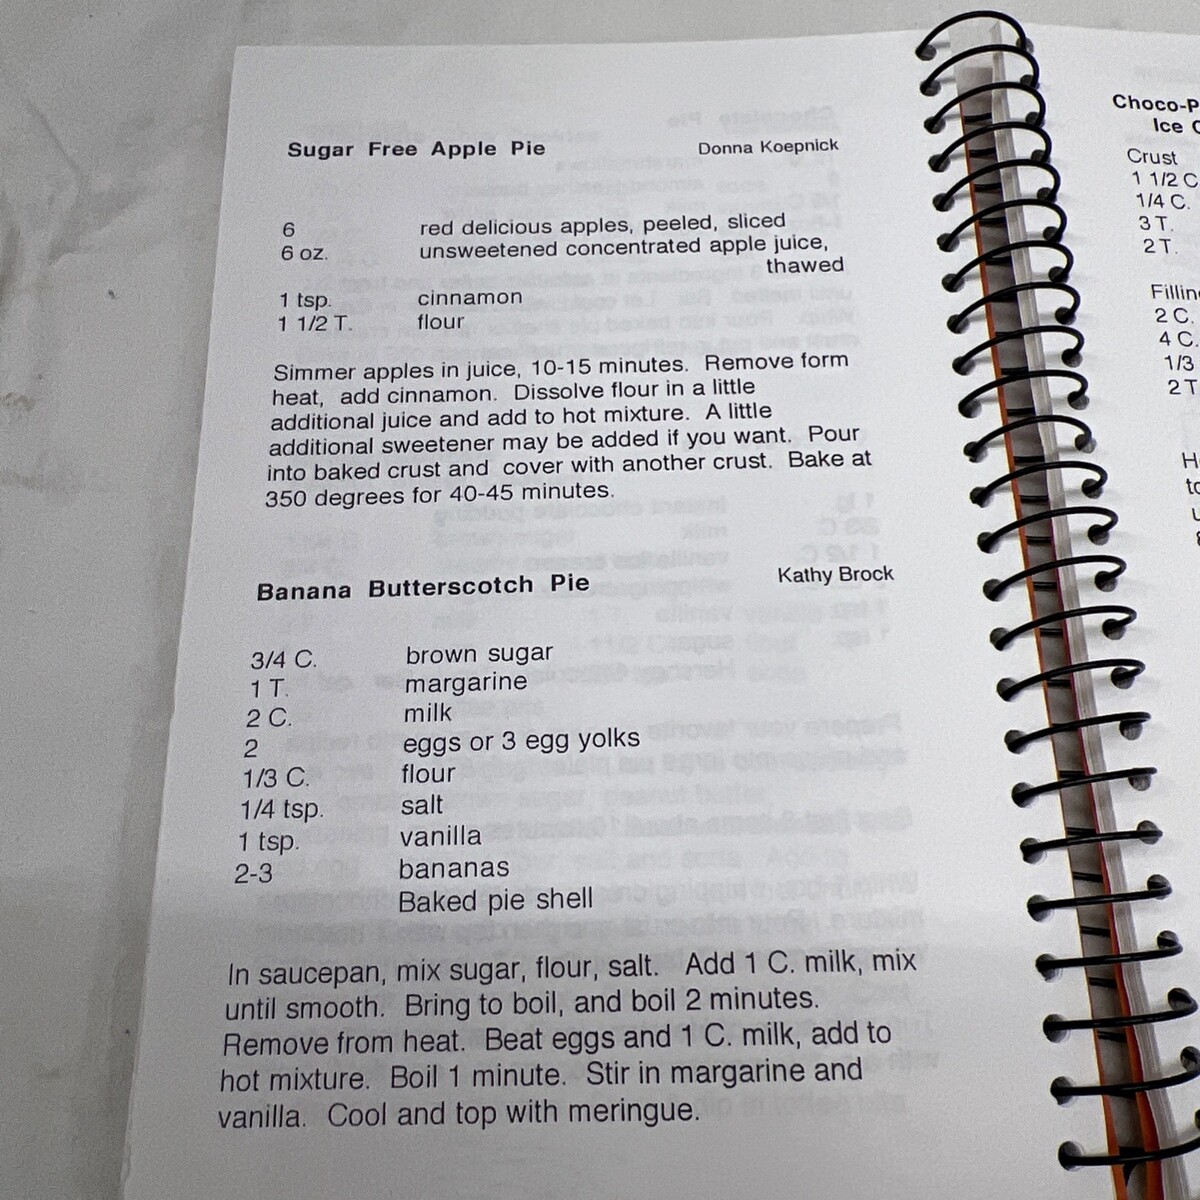 Sugar Free Apple Pie Donna Koepnick
6 red delicious apples, peeled, sliced
6 oz. unsweetened concentrated apple juice,
thawed
1 tsp. cinnamon
1 1/2 T. flour
Simmer apples in juice, 10-15 minutes. Remove form
heat, add cinnamon. Dissolve flour in a little
additional juice and add to hot mixture. A little
additional sweetener may be added if you want. Pour
into baked crust and cover with another crust. Bake at
350 degrees for 40-45 minutes.
Banana Butterscotch Pie Kathy Brock
3/4 C. brown sugar
1 T. margarine
2 C. milk
2 eggs or 3 egg yolks
1/3 C. flour
1/4 tsp. salt
1 tsp. vanilla
2-3 bananas
Baked pie shell
In saucepan, mix sugar, flour, salt. Add 1 C. milk, mix
until smooth. Bring to boil, and boil 2 minutes.
Remove from heat. Beat eggs and 1 C. milk, add to
hot mixture. Boil 1 minute. Stir in margarine and
vanilla. Cool and top with meringue.
Choco-P
Ice C
Crust
1 1/2 C
1/4 C.
3 T.
2 T.
Filling
2 C.
4 C.
1/3
2 T